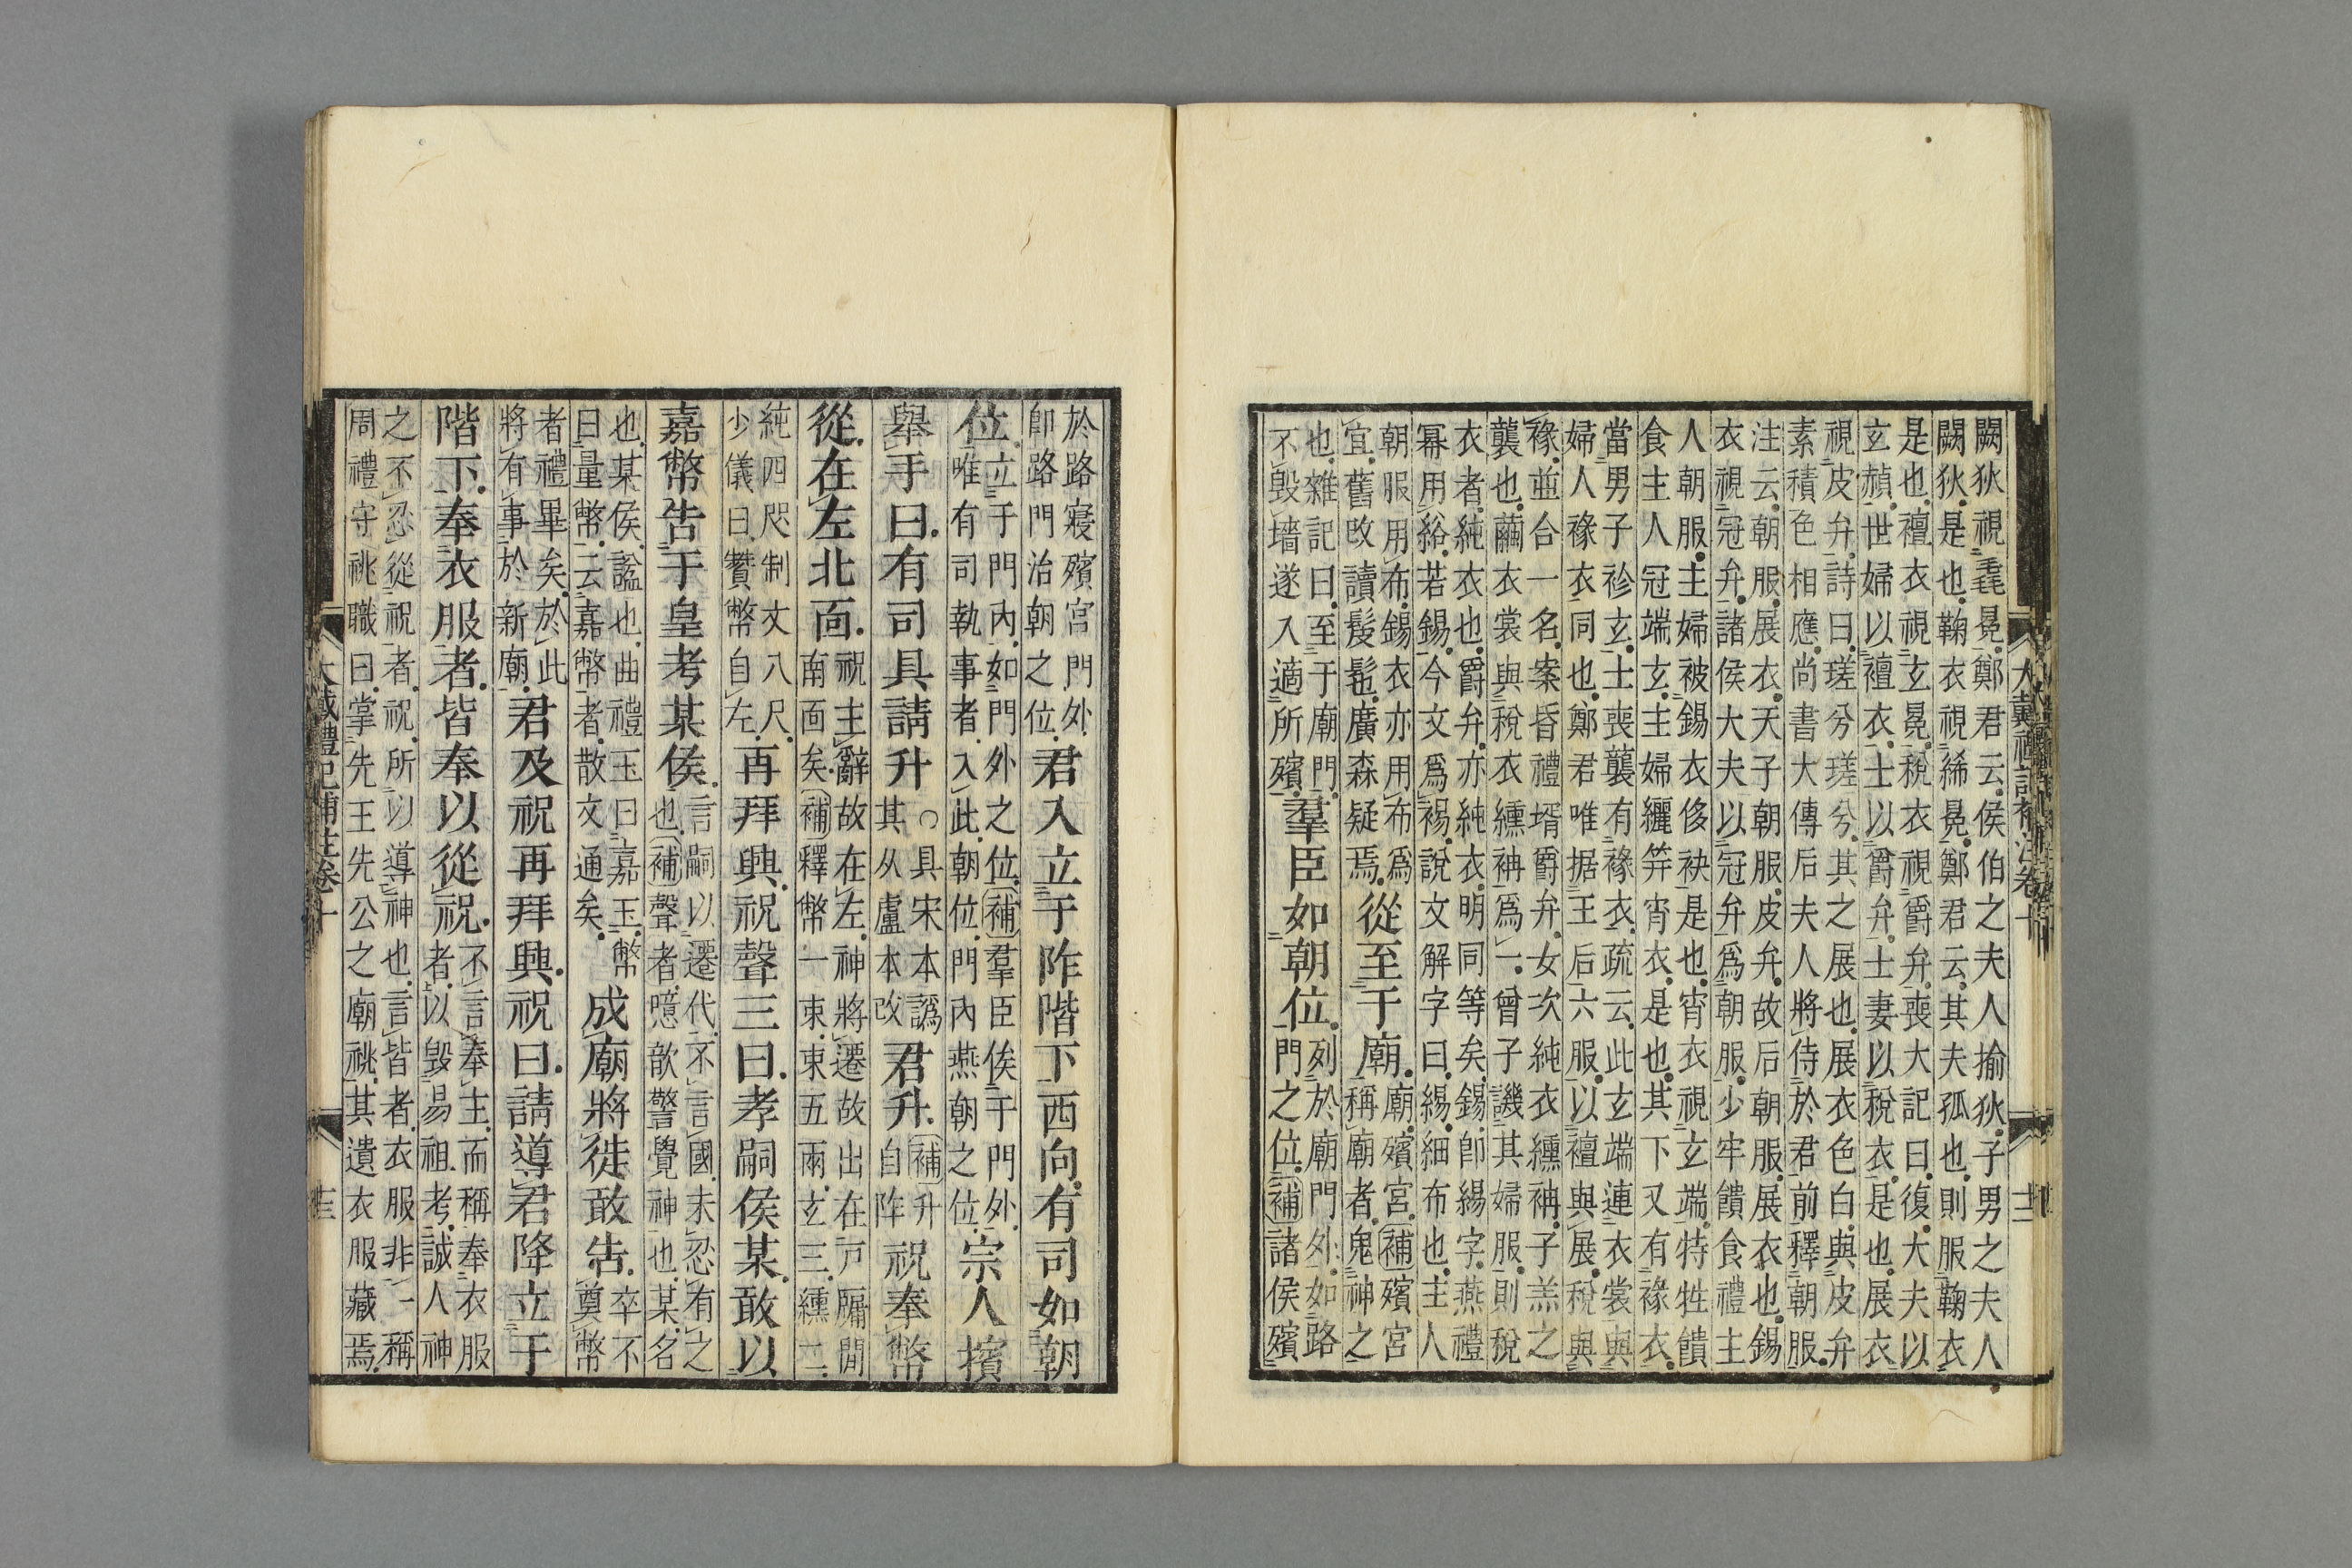 闕狄視毳冕鄭君云侯伯之夫人揄狄子男之夫人
闕狄是也鞠衣視絺冕鄭君云其夫孤也則服鞠衣
是也襢衣視玄冕稅衣視爵弁喪大記曰復大夫以
玄赬世婦以襢衣士以爵弁士妻以稅衣是也展衣
視皮弁詩曰瑳兮瑳兮其之展也展衣色白與皮弁
素積色相應尚書大傳后夫人將侍於君前釋朝服
注云朝服展衣天子朝服皮弁故后朝服展衣也錫
衣視冠弁諸侯大夫以冠弁爲朝服少牢饋食禮主
人朝服主婦被錫衣侈袂是也宵衣視玄端特牲饋
食主人冠端玄主婦纚笄宵衣是也其下又有褖衣
當男子袗玄士喪襲有褖衣疏云此玄端連衣裳與
婦人褖衣同也鄭君唯据王后六服以襢與展稅與
褖並合一名案昏禮壻爵弁女次純衣纁袡子羔之
襲也繭衣裳與稅衣纁袡爲一曾子譏其婦服則稅
衣者純衣也爵弁亦純衣明同等矣錫卽緆字燕禮
冪用綌若錫今文爲裼說文解字曰緆細布也主人
朝服用布錫衣亦用布爲
宜舊改讀髲髢廣森疑焉
從至于廟
廟殯宮補殯宮
稱廟者鬼神之
也雜記曰至于廟門
不毀墻遂入適所殯
羣臣如朝位
列於廟門外如路
門之位補諸侯殯
於路寢殯宮門外
卽路門治朝之位
君入立于阼階下西向有司如朝
位
立于門內如門外之位補羣臣俟于門外
唯有司執事者入此朝位門內燕朝之位
宗人擯
舉手曰有司具請升
○具宋本譌
其从盧本改
君升
補升
自阼
祝奉幣
從在左北面
祝主辭故在左神將遷故出在戸牖間
南面矣補釋幣一束束五兩玄三纁二
純四咫制丈八尺
少儀曰贊幣自左
再拜興祝聲三曰孝嗣侯某敢以
嘉幣告于皇考某侯
言嗣以遷代不言國未忍有之
也補聲者噫歆警覺神也某名
也某侯諡也曲禮玉曰嘉玉幣
曰量幣云嘉幣者散文通矣
成廟將徙敢告
卒不
奠幣
者禮畢矣於此
將有事於新廟
君及祝再拜興祝曰請導君降立于
階下奉衣服者皆奉以從祝
不言奉主而稱奉衣服
者以毀易祖考誠人神
之不忍從祝者祝所以導神也言皆者衣服非一稱
周禮守祧職曰掌先王先公之廟祧其遺衣服藏焉
大戴禮記補注卷十